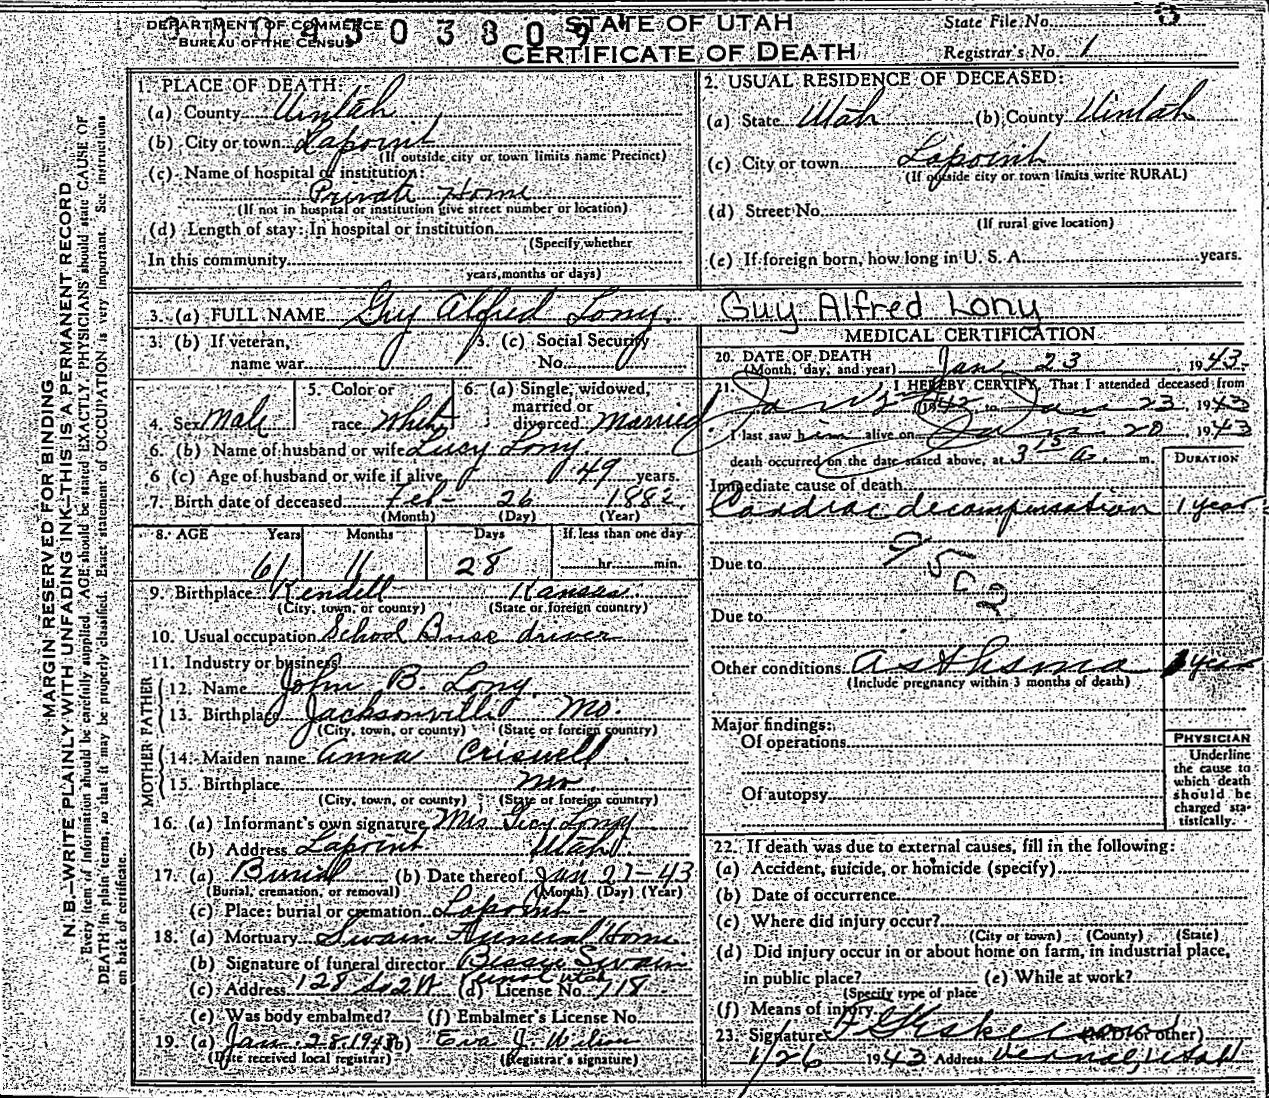 DEPARTMENT OF COMMERCE
BUREAU OF THE CENSUS
STATE OF UTAH
CERTIFICATE OF DEATH
State File No. 8
Registrar's No. 1
MARGIN RESERVED FOR BINDING
N. B.—WRITE PLAINLY WITH UNFADING INK—THIS IS A PERMANENT RECORD
Every item of information should be carefully supplied. AGE should be stated EXACTLY. PHYSICIANS should state CAUSE OF
DEATH in plain terms, so that it may be properly classified. Exact statement of OCCUPATION is very important. See instructions
on back of certificate.
1. PLACE OF DEATH:
(a) County Uintah
(b) City or town Lapoint
(If outside city or town limits name Precinct)
(c) Name of hospital or institution:
Private Home
(If not in hospital or institution give street number or location)
(d) Length of stay: In hospital or institution
(Specify whether
In this community
years, months or days)
2. USUAL RESIDENCE OF DECEASED:
(a) State Utah (b) County Uintah
(c) City or town Lapoint
(If outside city or town limits write RURAL)
(d) Street No.
(If rural give location)
(e) If foreign born, how long in U. S. A. years.
3. (a) FULL NAME Guy Alfred Lony Guy Alfred Lony
3. (b) If veteran, 3. (c) Social Security
name war No.
4. Sex Male 5. Color or race White 6. (a) Single, widowed, married or divorced Married
6. (b) Name of husband or wife Lucy Lony
6 (c) Age of husband or wife if alive 49 years.
7. Birth date of deceased Feb- 26 1882
(Month) (Day) (Year)
8. AGE Years Months Days If less than one day
61 11 28 hr. min.
9. Birthplace Kendell Kansas
(City, town, or county) (State or foreign country)
10. Usual occupation School Buse driver
11. Industry or business
FATHER
12. Name John B. Lony
13. Birthplace Jacksonville Mo.
(City, town, or county) (State or foreign country)
MOTHER
14. Maiden name Anna Criswell
15. Birthplace Mo.
(City, town, or county) (State or foreign country)
16. (a) Informant's own signature Mrs Lony
(b) Address Lapoint Utah
17. (a) Burial (b) Date thereof Jan 27-43
(Burial, cremation, or removal) (Month) (Day) (Year)
(c) Place: burial or cremation Lapoint-
18. (a) Mortuary Swain Funeral Home
(b) Signature of funeral director Bessie Swain
(c) Address 128 So 2 W (d) License No. 118
(e) Was body embalmed? (f) Embalmer's License No.
19. (a) Jan. 28. 1943 (b) Eva J. Wilson
(Date received local registrar) (Registrar's signature)
MEDICAL CERTIFICATION
20. DATE OF DEATH Jan 23 1943
(Month, day, and year)
21. I HEREBY CERTIFY, That I attended deceased from
1942 to Jan 23, 1943
I last saw him alive on Jan 20 1943
death occurred on the date stated above, at 3 15 a. m.
DURATION
Immediate cause of death
Cardiac decompensation 1 year
Due to
95c2
Due to
Other conditions asthsma year
(Include pregnancy within 3 months of death)
Major findings:
Of operations
Of autopsy
PHYSICIAN
Underline
the cause to
which death
should be
charged sta-
tistically.
22. If death was due to external causes, fill in the following:
(a) Accident, suicide, or homicide (specify)
(b) Date of occurrence
(c) Where did injury occur?
(City or town) (County) (State)
(d) Did injury occur in or about home on farm, in industrial place,
in public place? (e) While at work?
(Specify type of place
(f) Means of injury
23. Signature (M.D. or other)
1/26 1943 Address Vernal, Utah